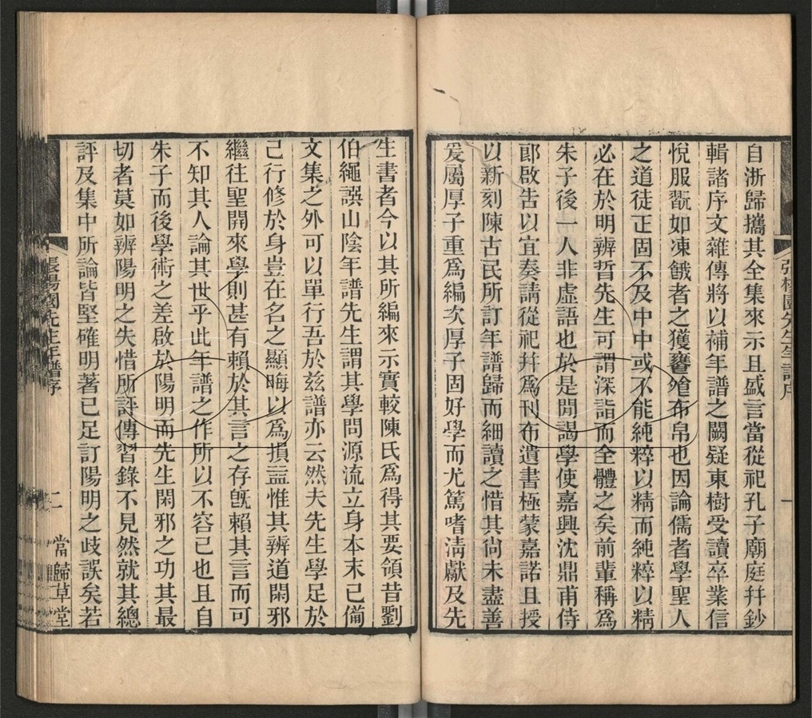 自浙歸攜其全集來示且盛言當從祀孔子廟庭幷鈔
輯諸序文雜傳將以補年譜之闕疑東樹受讀卒業信
悅服翫如凍餓者之獲饔飧布帛也因論儒者學聖人
之道徒正固不及中中或不能純粹以精而純粹以精
必在於明辨晢先生可謂深詣而全體之矣前輩稱爲
朱子後一人非虛語也於是閒謁學使嘉興沈鼎甫侍
郎啟告以宜奏請從祀幷爲刊布遺書極蒙嘉諾且授
以新刻陳古民所訂年譜歸而細讀之惜其尙未盡善
爰屬厚子重爲編次厚子固好學而尤篤嗜淸獻及先
張楊園先生年譜序
一
生書者今以其所編來示實較陳氏爲得其要領昔劉
伯繩譔山陰年譜先生謂其學問源流立身本末已備
文集之外可以單行吾於茲譜亦云然夫先生學足於
己行修於身豈在名之顯晦以爲損益惟其辨道閑邪
繼往聖開來學則甚有賴於其言之存旣賴其言而可
不知其人論其世乎此年譜之作所以不容已也且自
朱子而後學術之差啟於陽明而先生閑邪之功其最
切者莫如辨陽明之失惜所評傳習錄不見然就其總
評及集中所論皆堅確明著已足訂陽明之歧誤矣若
張楊園先生年譜序
二
當歸草堂